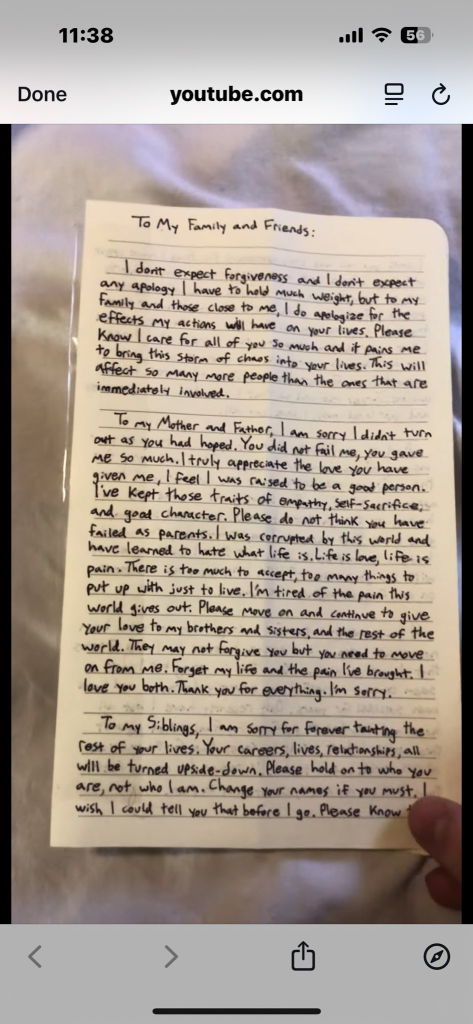 11:38
56
Done
youtube.com
To My Family and Friends:
I don't expect forgiveness and I don't expect
any apology I have to hold much weight, but to my
family and those close to me, I do apologize for the
effects my actions will have on your lives. Please
Know I care for all of you so much and it pains me
to bring this storm of chaos into your lives. This will
affect so many more people than the ones that are
immediately involved.
To my Mother and Father, I am sorry I didn't turn
out as you had hoped. You did not fail me, you gave
me so much. I truly appreciate the love you have
given me, I feel I was raised to be a good person.
I've kept those traits of empathy, self-sacrifice,
and good character. Please do not think you have
failed as parents. I was corrupted by this world and
have learned to hate what life is. Life is love, life is
pain. There is too much to accept, too many things to
put up with just to live. I'm tired of the pain this
world gives out. Please move on and continue to give
your love to my brothers and sisters, and the rest of the
world. They may not forgive you but you need to move
on from me. Forget my life and the pain I've brought. I
love you both. Thank you for everything. I'm sorry.
To my Siblings, I am sorry for forever tainting the
rest of your lives. Your careers, lives, relationships, all
will be turned upside-down. Please hold on to who you
are, not who I am. Change your names if you must. I
wish I could tell you that before I go. Please Know